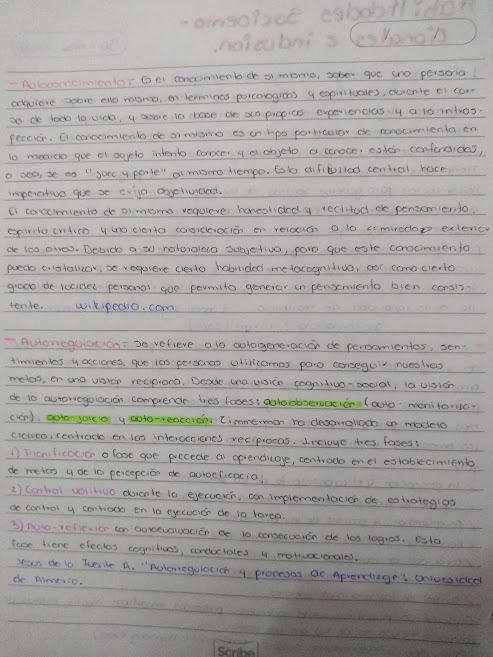 Habilidades Socioemo-
cionales e inducción.
- Autoconocimiento = Es el conocimiento de sí mismo, saber que una persona
adquiere sobre ella misma, en términos psicológicos y espirituales, durante el cur-
so de toda la vida, y sobre la base de sus propias experiencias y a la intros-
pección. El conocimiento de si mismo es un tipo particular de conocimiento en
la medida que el sujeto intenta conocer y el objeto a conocer están confundidos,
o sea, se es "juez y parte" al mismo tiempo. Esta dificultad central hace
imperativo que se exija objetividad.
El conocimiento de si mismo requiere honestidad y rectitud de pensamiento,
espíritu critico y una cierta consideración en relación a la <<mirada>> exterior
de los otros. Debido a su naturaleza subjetiva, para que este conocimiento
pueda cristalizar, se requiere cierta habilidad metacognitiva, así como cierto
grado de lucidez personal que permita generar un pensamiento bien consis-
tente. wikipedia.com
- Autorregulación = Se refiere a la autogeneración de pensamientos, sen-
timientos y acciones, que las personas utilizamos para conseguir nuestras
metas, en una visión recíproca. Desde una visión cognitivo-social, la visión
de la autorregulación comprende tres fases: autoobservación (auto-monitoriza-
ción), auto-juicio y auto-reacción. Zimmerman ha desarrollado un modelo
cíclico, centrado en las interacciones reciprocas. Incluye tres fases:
1) Planificación o fase que precede al aprendizaje, centrado en el establecimiento
de metas y de la percepción de autoeficacia;
2) Control volitivo durante la ejecución, con implementación de estrategias
de control y centrado en la ejecución de la tarea.
3) Auto-reflexión con autoevaluación de la consecución de los logros. Esta
fase tiene efectos cognitivos, conductales y motivacionales.
Jesus de la Fuente A. "Autorregulación y procesos de Aprendizaje". Universidad
de Almería.
Scribe